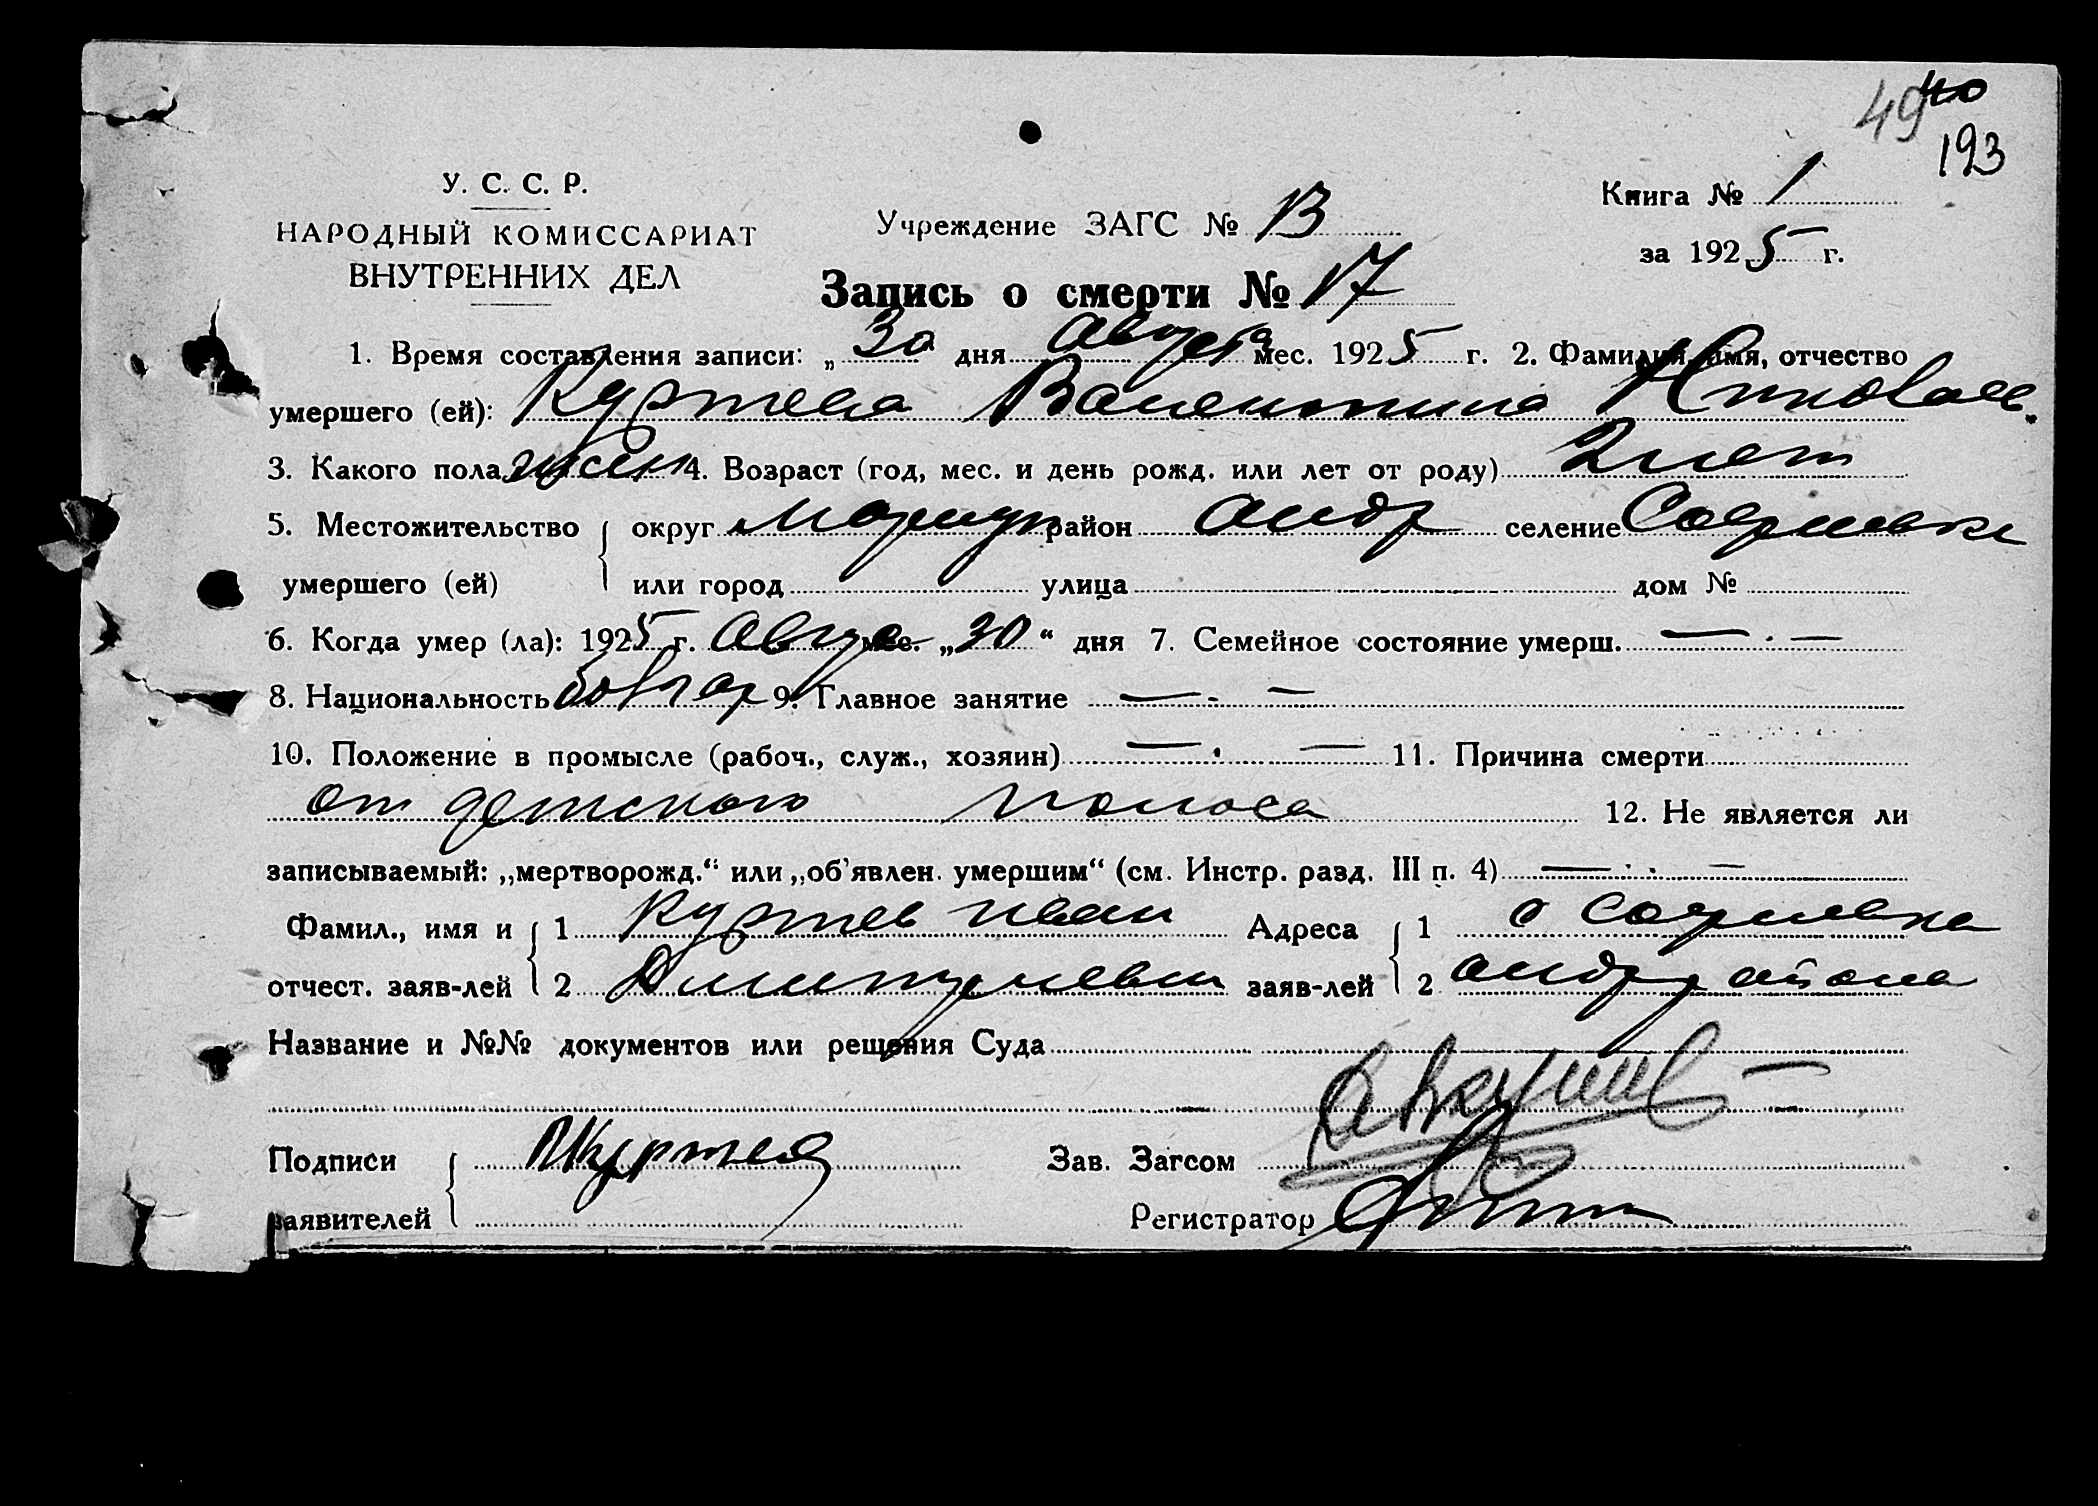 49 40
193
У. С. С. Р.
НАРОДНЫЙ КОМИССАРИАТ
ВНУТРЕННИХ ДЕЛ
Учреждение ЗАГС № В
Книга № 1
за 1925 г.
Запись о смерти № 17
1. Время составления записи: „ 30 дня Августа мес. 1925 г. 2. Фамилия, имя, отчество
умершего (ей): Куртева Валентина Николаев.
3. Какого пола жен 4. Возраст (год, мес. и день рожд. или лет от роду) 2 лет
5. Местожительство округ Мариуп район Андр селение Софиевке
умершего (ей) или город улица дом №
6. Когда умер (ла): 1925 г. Авгус мес. „30“ дня 7. Семейное состояние умерш. — . —
8. Национальность болгар 9. Главное занятие — . —
10. Положение в промысле (рабоч., служ., хозяин) — . — 11. Причина смерти
от детского поноса 12. Не является ли
записываемый: „мертворожд.“ или „об'явлен. умершим“ (см. Инстр. разд. III п. 4) — . . —
Фамил., имя и 1 Куртев Иван Адреса 1 с Софиевка
отчест. заяв-лей 2 Дмитриевич заяв-лей 2 андр района
Название и №№ документов или решения Суда
Подписи Куртев Зав. Загсом
заявителей Регистратор